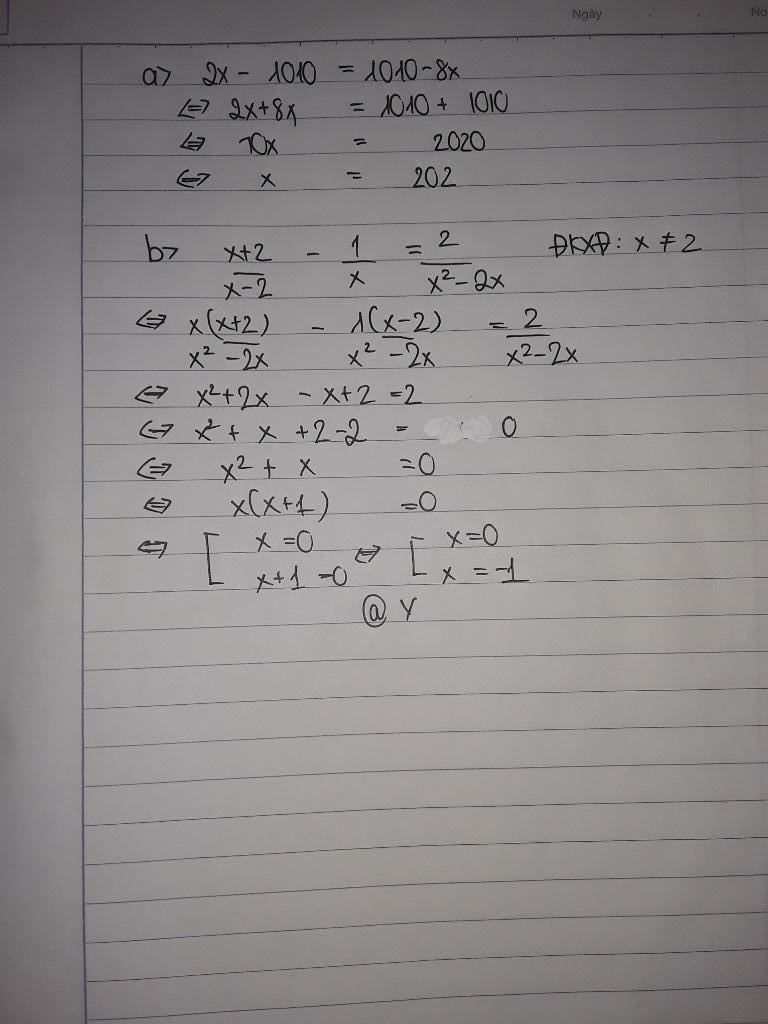 Ngày No
a> 2x - 1010 = 1010 - 8x
⇔ 2x + 8x = 1010 + 1010
⇔ 10x = 2020
⇔ x = 202
b> x+2/x-2 - 1/x = 2/x²-2x ĐKXĐ: x ≠ 2
⇔ x(x+2)/x²-2x - 1(x-2)/x²-2x = 2/x²-2x
⇔ x²+2x - x+2 = 2
⇔ x² + x +2-2 = 0
⇔ x² + x = 0
⇔ x(x+1) = 0
⇔ [ x = 0 ⇔ [ x = 0
x+1 = 0 x = -1
@ Y